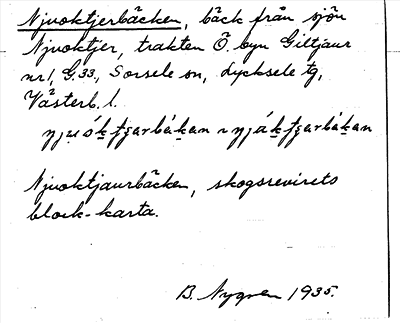 Njuoktjerbäcken, bäck från sjön
Njuoktjer, trakten Ö. byn Giltjaur
nr 1, G. 33, Sorsele sn, Lycksele tg,
Västerb. l.
Njuoktjaurbäcken, skogsrevirets
block-karta.
B. Nygren 1935.